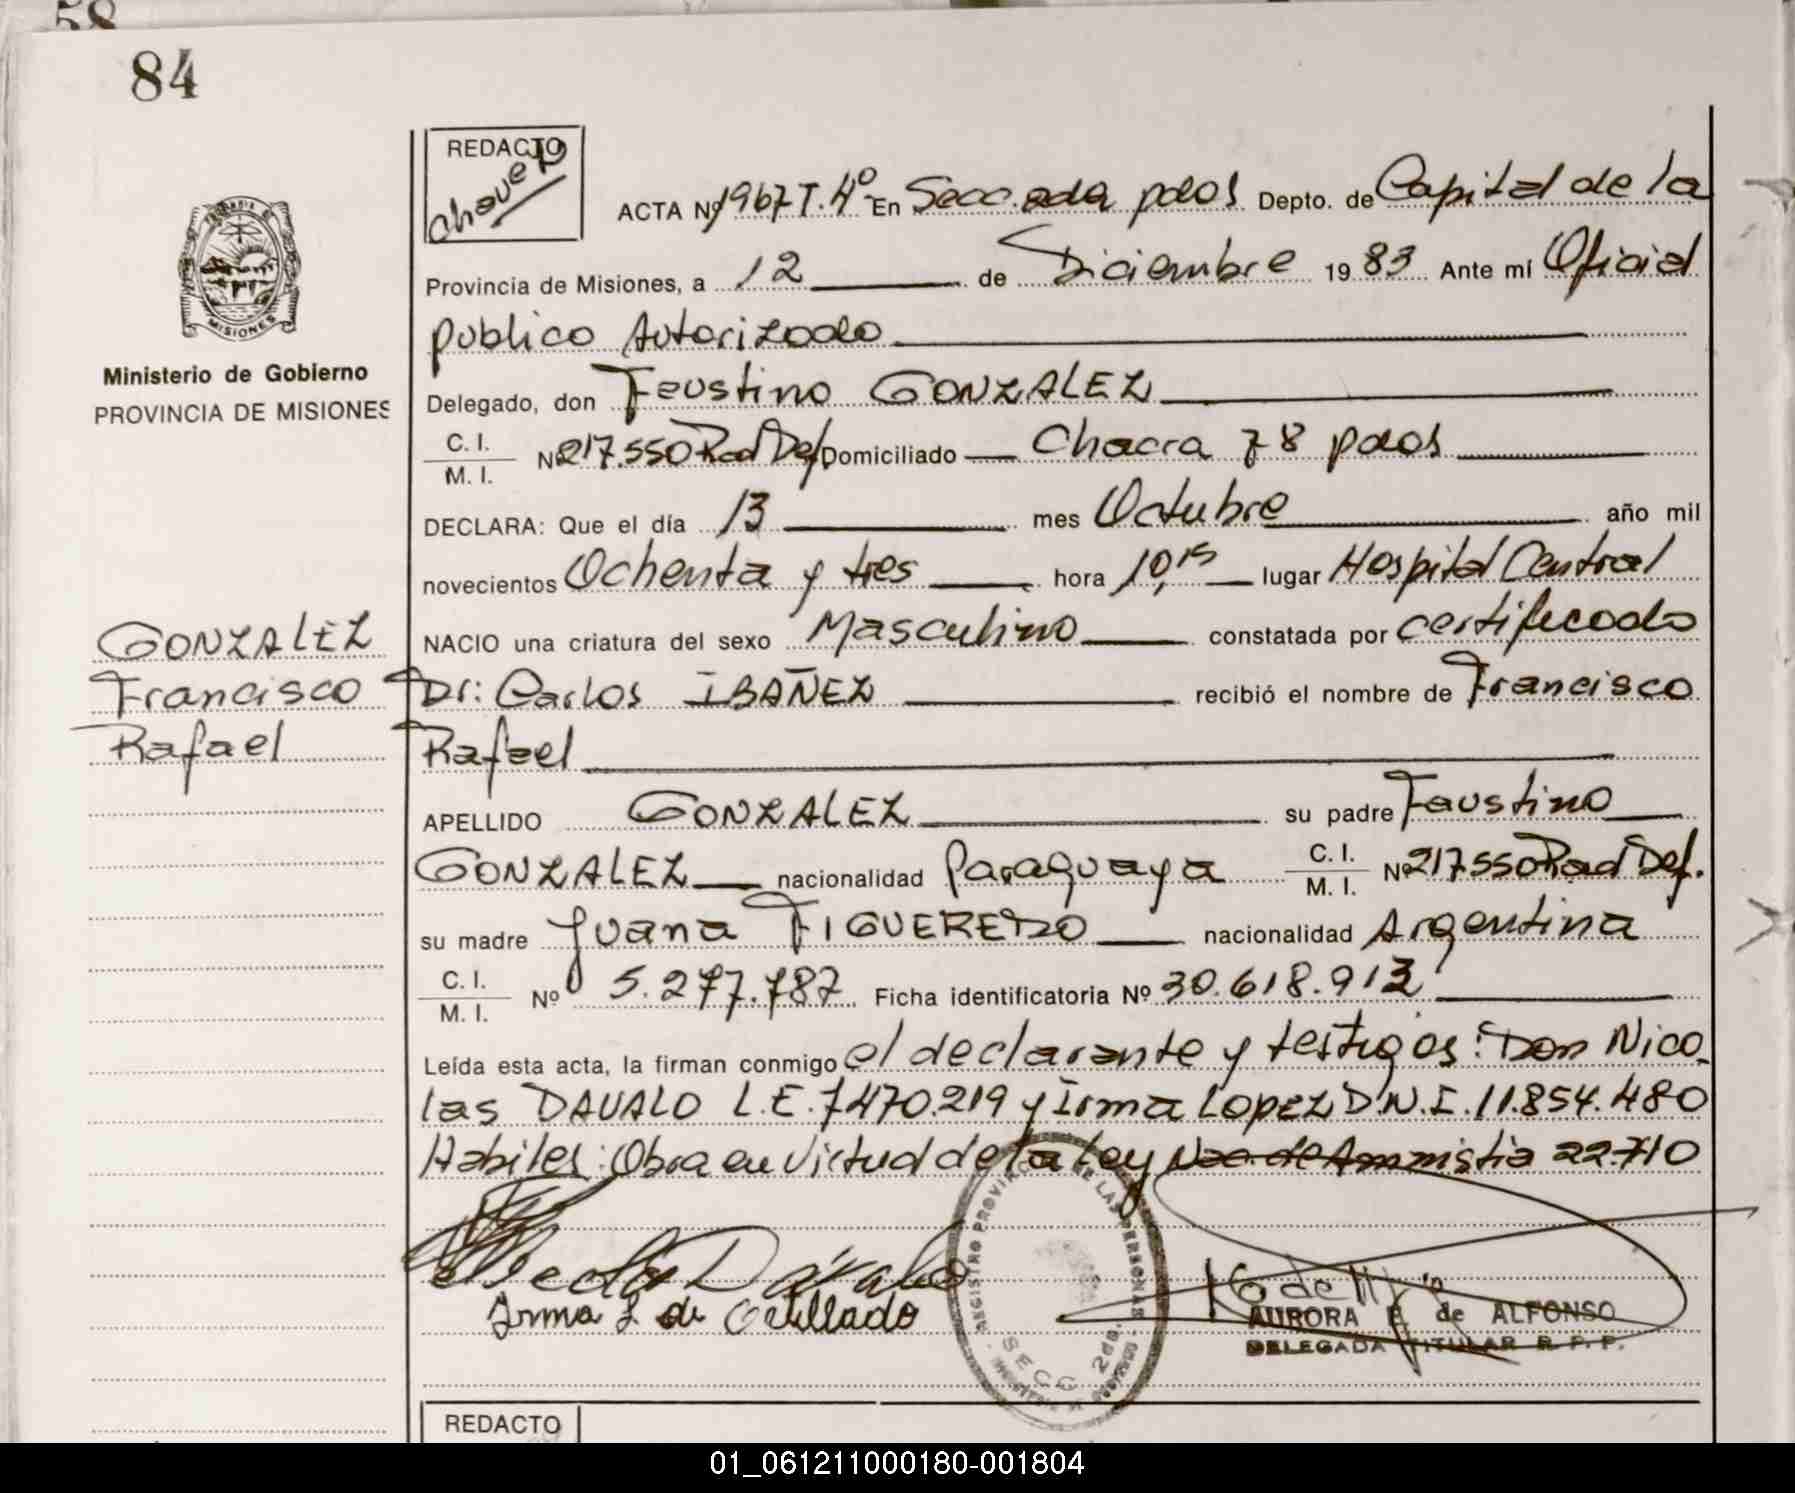 84
REDACTO
Chavez
ACTA Nº 1967 T. 4º En Secc. 2da pdas Depto. de Capital de la
MISIONES
Provincia de Misiones, a 12 de Diciembre 1983 Ante mí Oficial
publico Autorizado
Ministerio de Gobierno
PROVINCIA DE MISIONES
Delegado, don Faustino GONZALEZ
C. I.
M. I. Nº 217.550 Rad Def Domiciliado Chacra 78 pdas
DECLARA: Que el día 13 mes Octubre año mil
novecientos Ochenta y tres hora 10,15 lugar Hospital Central
NACIO una criatura del sexo Masculino constatada por certificado
GONZALEZ
Francisco
Rafael
Dr: Carlos IBAÑEZ recibió el nombre de Francisco
Rafael
APELLIDO GONZALEZ su padre Faustino
GONZALEZ nacionalidad Paraguaya C. I. M. I. Nº 217550 Rad Def.
su madre Juana FIGUEREDO nacionalidad Argentina
C. I.
M. I. Nº 5.277.787 Ficha identificatoria Nº 30.618.913
Leída esta acta, la firman conmigo el declarante y testigos: Don Nico
las DAVALO L.E. 7470.219 y Irma LOPEZ D.N.I. 11.854.480
Habiles: Obra en Virtud de la Ley Nac. de Ammistia 22.710
Irma L de
REGISTRO PROVIN DE LAS PERSONAS
SECC 2da.
AURORA E. de ALFONSO
DELEGADA TITULAR R. P. P.
REDACTO
01_061211000180-001804